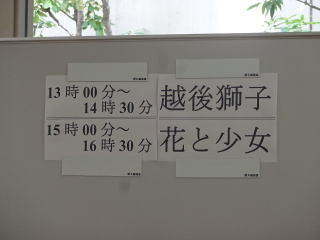 13時00分～
14時30分
越後獅子
15時00分～
16時30分
花と少女